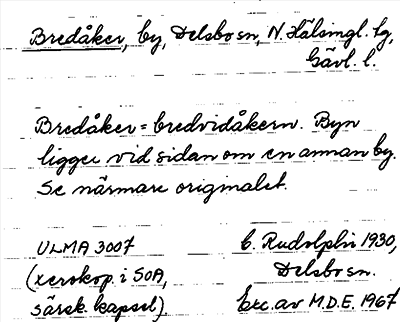 Bredåker, by, Delsbo sn, N. Hälsingl. tg,
Gävl. l.
Bredåker = bredvidåkern. Byn
ligger vid sidan om en annan by.
Se närmare originalet.
ULMA 3007 C. Rudolphi 1930,
(xerokop. i SOA, Delsbo sn.
särsk. kapsel) Exc. av M.D.E. 1967